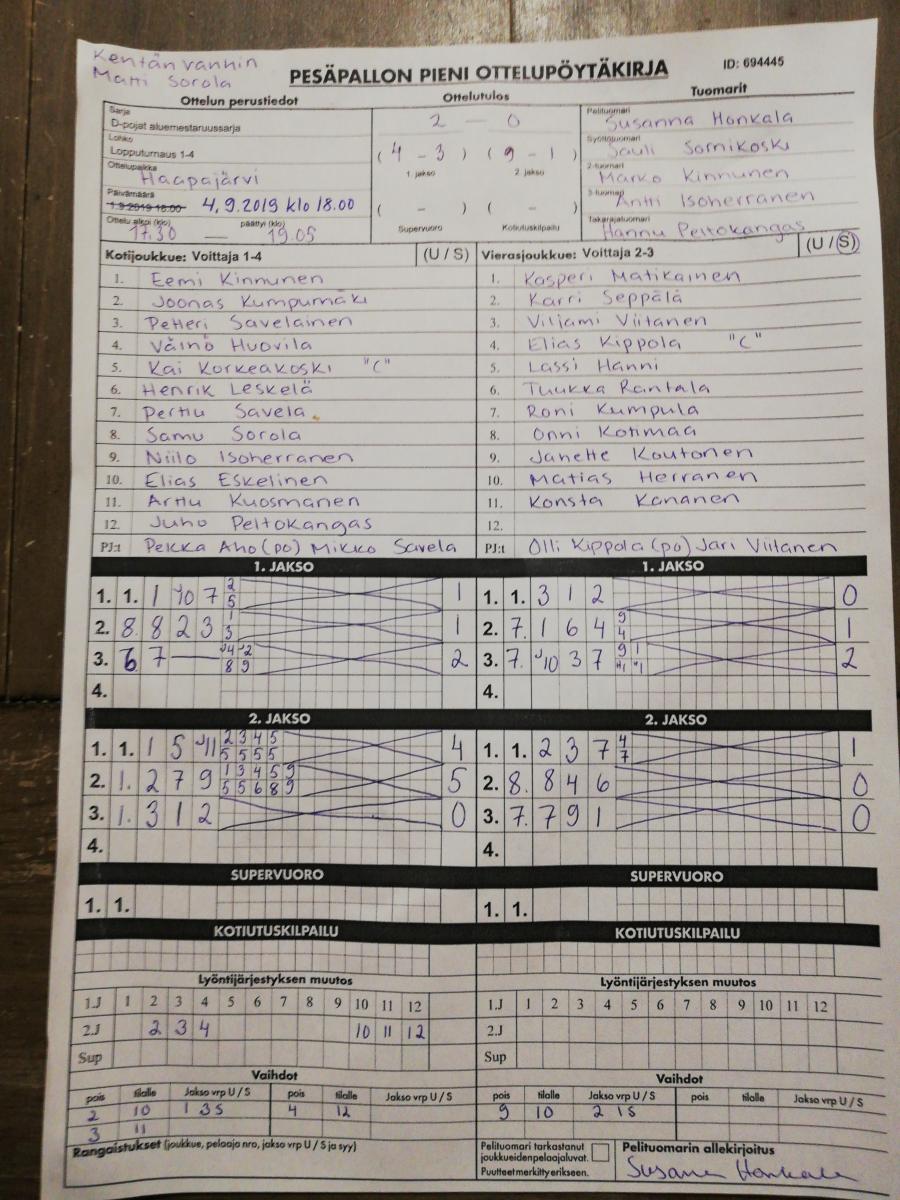 Kentän vanhin
Matti Sorola
PESÄPALLON PIENI OTTELUPÖYTÄKIRJA
ID: 694445
Ottelun perustiedot
Sarja
D-pojat aluemestaruussarja
Lohko
Lopputurnaus 1-4
Ottelupaikka
Haapajärvi
Päivämäärä
1.9.2019 18.00 4.9.2019 klo 18.00
Ottelu alkoi (klo) päättyi (klo)
17.30 — 19.05
Ottelutulos
2 — 0
( 4 - 3 ) ( 9 - 1 )
1. jakso 2. jakso
( - ) ( - )
Supervuoro Kotiutuskilpailu
Tuomarit
Pelituomari
Susanna Honkala
Syöttötuomari
Sauli Sornikoski
2-tuomari
Marko Kinnunen
3-tuomari
Antti Isoherranen
Takarajatuomari
Hannu Peltokangas
Kotijoukkue: Voittaja 1-4 (U / S)
1. Eemi Kinnunen
2. Joonas Kumpumäki
3. Petteri Savelainen
4. Väinö Huovila
5. Kai Korkeakoski "C"
6. Henrik Leskelä
7. Perttu Savela
8. Samu Sorola
9. Niilo Isoherranen
10. Elias Eskelinen
11. Arttu Kuosmanen
12. Juho Peltokangas
PJ:t Pekka Aho (po) Mikko Savela
Vierasjoukkue: Voittaja 2-3 (U / S)
1. Kasperi Matikainen
2. Karri Seppälä
3. Viljami Viitanen
4. Elias Kippola "C"
5. Lassi Hänni
6. Tuukka Rantala
7. Roni Kumpula
8. Onni Kotimaa
9. Janette Koutonen
10. Matias Herranen
11. Konsta Kananen
12.
PJ:t Olli Kippola (po) Jari Viitanen
1. JAKSO
1. 1. 1 J10 7 2 5 1
2. 8. 8 2 3 1 3 1
3. 6 7 — J4 J2 8 9 2
4.
1. JAKSO
1. 1. 3 1 2 0
2. 7. 1 6 4 9 4 1
3. 7. J10 3 7 9 1 2
4.
2. JAKSO
1. 1. 1 5 J11 2 3 4 5 5 5 5 5 4
2. 1. 2 7 9 1 3 4 5 9 5 5 6 8 9 5
3. 1. 3 1 2 0
4.
2. JAKSO
1. 1. 2 3 7 4 7 1
2. 8. 8 4 6 0
3. 7. 7 9 1 0
4.
SUPERVUORO
1. 1.
SUPERVUORO
1. 1.
KOTIUTUSKILPAILU
KOTIUTUSKILPAILU
Lyöntijärjestyksen muutos
1.J 1 2 3 4 5 6 7 8 9 10 11 12
2.J 2 3 4 10 11 12
Sup
Lyöntijärjestyksen muutos
1.J 1 2 3 4 5 6 7 8 9 10 11 12
2.J
Sup
Vaihdot
pois tilalle Jakso vrp U / S pois tilalle Jakso vrp U / S
2 10 1 3S 4 12
3 11
Vaihdot
pois tilalle Jakso vrp U / S pois tilalle Jakso vrp U / S
9 10 2 1S
Rangaistukset (joukkue, pelaaja nro, jakso vrp U / S ja syy)
Pelituomari tarkastanut
joukkueidenpelaajaluvat.
Puutteet merkitty erikseen.
Pelituomarin allekirjoitus
Susanna Honkala